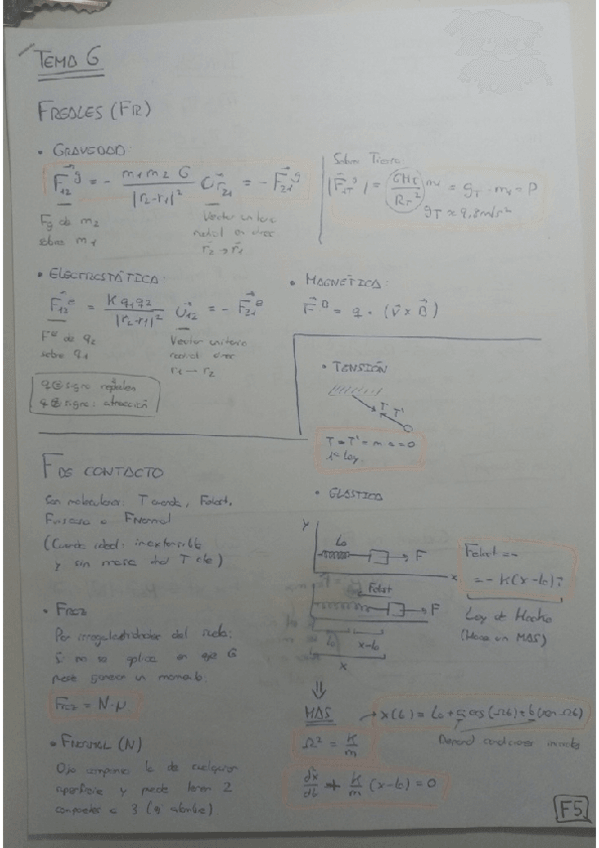 TEMA 6
FREALES (FR)
• GRAVEDAD:
F₁₂ᵍ = - m₁m₂ G / |r₂-r₁|² Ur₂₁ = - F₂₁ᵍ
Fg de m₂
sobre m₁
Vector unitario
radial en direc
r₂ → r₁
Sobre Tierra
|F₁Tᵍ| = (GMT / RT²) m₁ = gT · m₁ = P
gT ≈ 9,8 m/s²
• ELECTROSTÁTICA:
F₁₂ᵉ = K q₁ q₂ / |r₂-r₁|² U₁₂ = - F₂₁ᵉ
Fᵉ de q₂
sobre q₁
Vector unitario
radial direc
r₁ → r₂
signo repulsión
signo: atracción
• MAGNÉTICA:
Fᴮ = q · (V × B)
• TENSIÓN
T T'
T = T' = m a = 0
Ley
F DE CONTACTO
Son moleculares. T cuerda, Felast,
Froz o FNormal
(Cuerda ideal: inextensible
y sin masa dol T cte)
• Froz
Por irregularidades del suelo:
Si no se aplica en G
puede generar un momento.
Froz = N·μ
• FNORMAL (N)
Ojo de cualquier
superficie y puede tener 2
componentes o 3
• ELÁSTICA
y
L₀
F
x
Felast
F
L₀ x-L₀
x
Felast =
= - K(x-L₀)i
Ley de Hooke
(Hace un MAS)
⇓
MAS
Ω² = K/m
→ x(t) = L₀ + a cos(Ωt) + b sen Ωt)
condiciones iniciales
dx/dt + K/m (x-L₀) = 0
F5